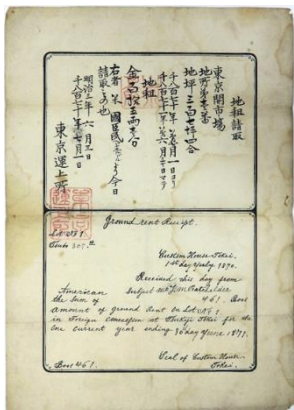 地租請取
東京開市場
地所第壱番
地坪 三百七坪四合
千八百七十年第七月一日ヨリ
千八百七十一年第六月三十日マテ
地租
金
右者 米 國民
請取もの也
明治三年 六月三日
千八百七十年第七月一日
東京運上所
Ground rent Receipt.
Lot No 1
Tsubo 305.
Custom House Tokei.
1st day July 1870.
Received this day from
American Subject
the Sum of 461. Boos
Amount of ground Rent On Lot No 1
in Foreign concession at Tsukiji Tokei for the
One current year ending 30 day June 1871.
Boos 461.
Seal of Custom House
Tokei.